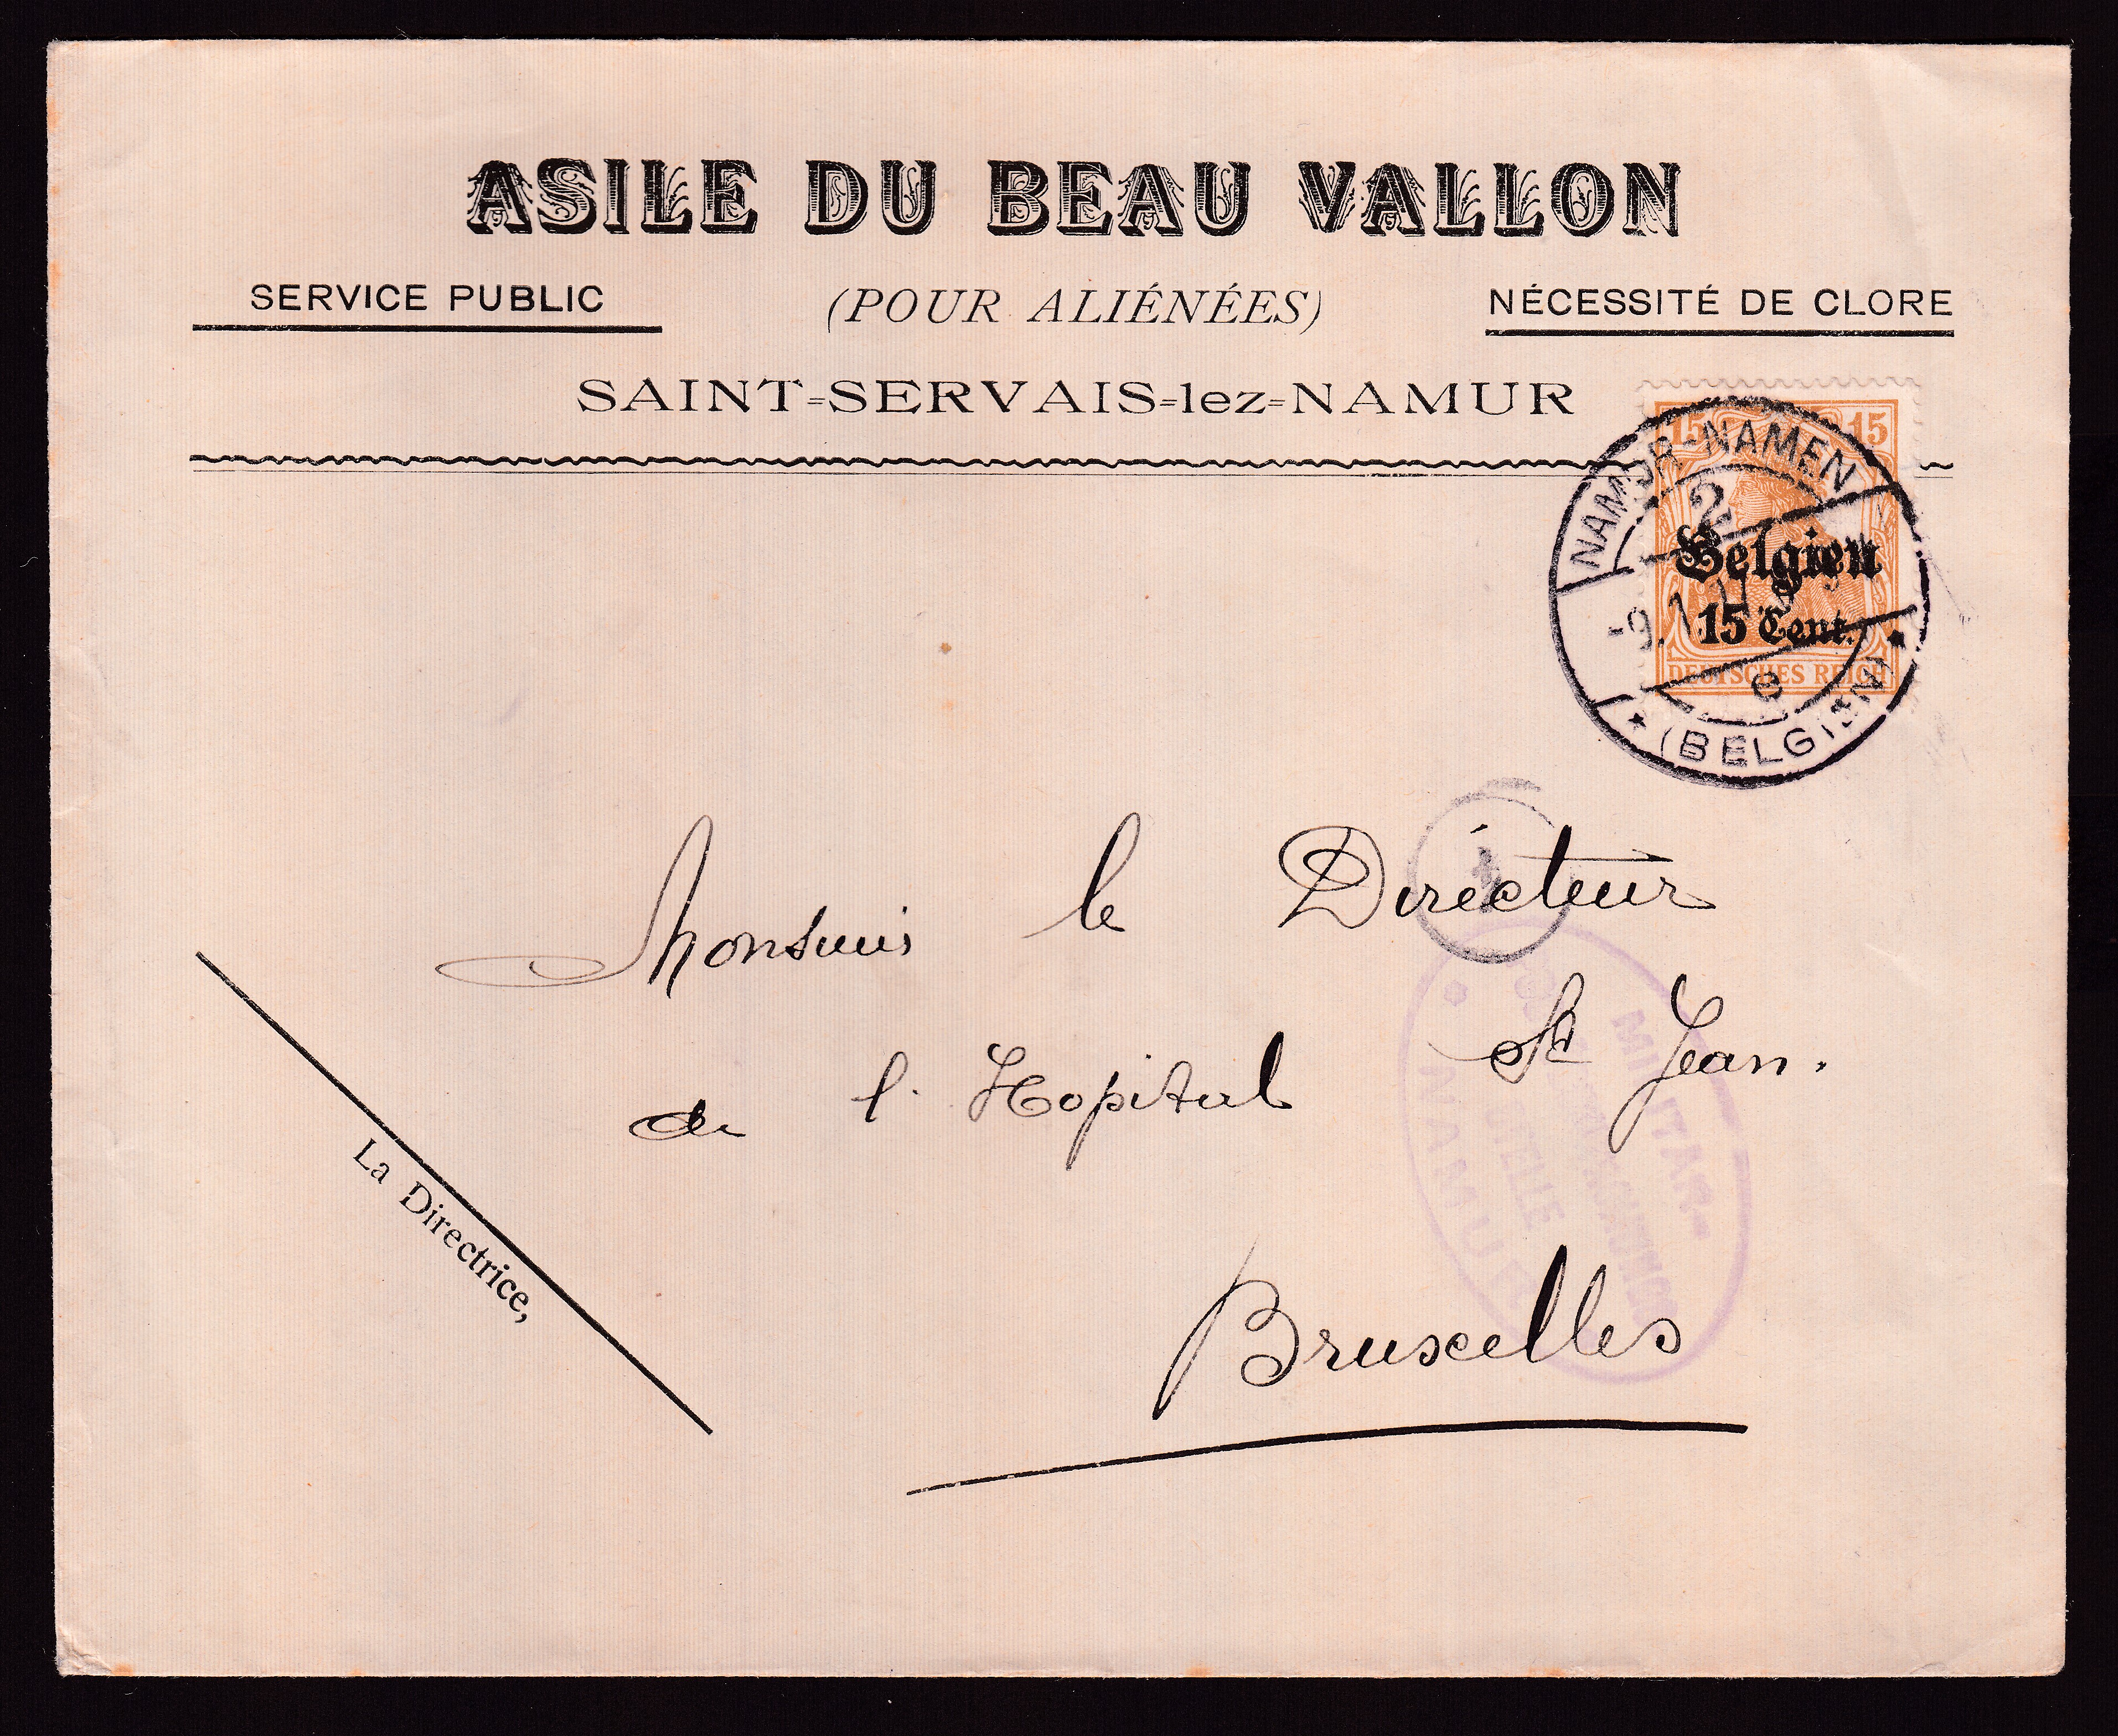 ASILE DU BEAU VALLON
SERVICE PUBLIC
(POUR ALIÉNÉES)
NÉCESSITÉ DE CLORE
SAINT=SERVAIS=lez=NAMUR
15 15
NAMUR-NAMEN
2
Belgien
15 Cent.
-9.1.17.
DEUTSCHES REICH
e
* (BELGIEN) *
Monsieur le Directeur
de l'Hopital St Jean.
Bruxelles
La Directrice,
MILITÄR-
STELLE
NAMUR